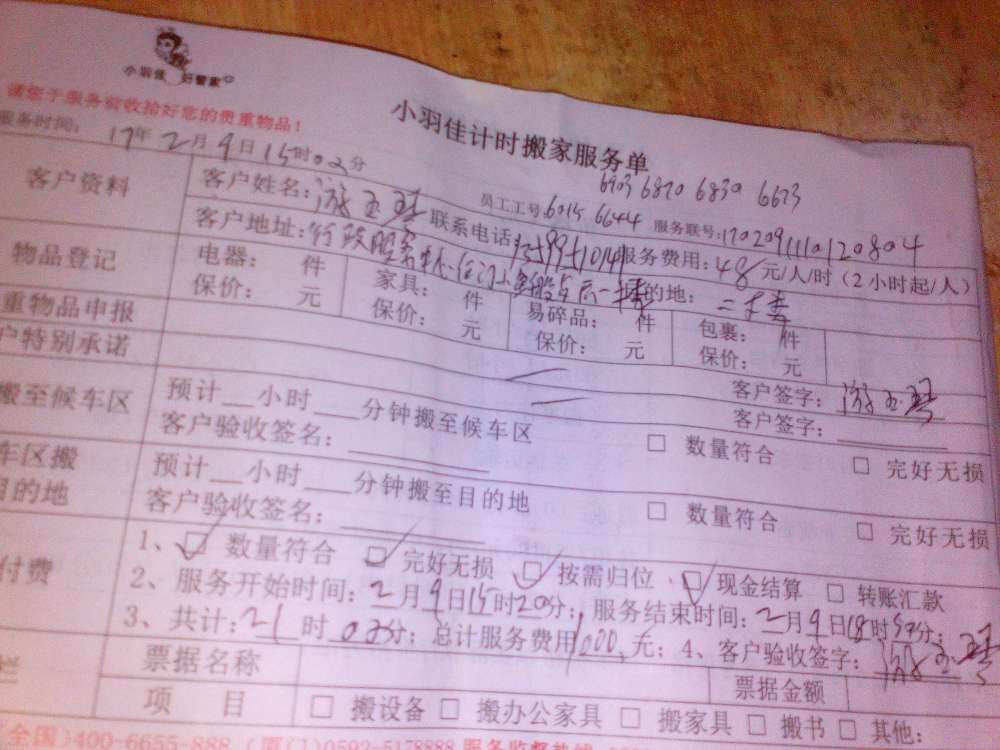 小羽佳 好管家
请您于服务前收拾好您的贵重物品!
小羽佳计时搬家服务单
服务时间: 17年2月9日15时02分
6903 6820 6830 6673
员工工号:6015 6644 服务联号:170209111012 0804
客户资料 客户姓名: 游玉琴 联系电话: 服务费用:48元/人/时(2小时起/人)
客户地址:行政服务中心 目的地: 二楼
物品登记 电器: 件 家具: 件 易碎品: 件 包裹: 件
保价: 元 保价: 元 保价: 元 保价: 元
重物品申报 客户签字: 游玉琴
户特别承诺 客户签字:
搬至候车区 预计__小时__分钟搬至候车区 □ 数量符合 □ 完好无损
客户验收签名:
车区搬 预计__小时__分钟搬至目的地 □ 数量符合 □ 完好无损
目的地 客户验收签名:
付费 1、☑ 数量符合 ☑ 完好无损 ☑ 按需归位 ☑ 现金结算 □ 转账汇款
2、服务开始时间:2月9日15时20分; 服务结束时间:2月9日18时50分;
3、共计:21时 分; 总计服务费用1000元; 4、客户验收签字: 游玉琴
栏 票据名称 票据金额
项 目 □ 搬设备 □ 搬办公家具 □ 搬家具 □ 搬书 □ 其他:
全国)400-6655-888 (厦门)0592-5178888 服务监督热线